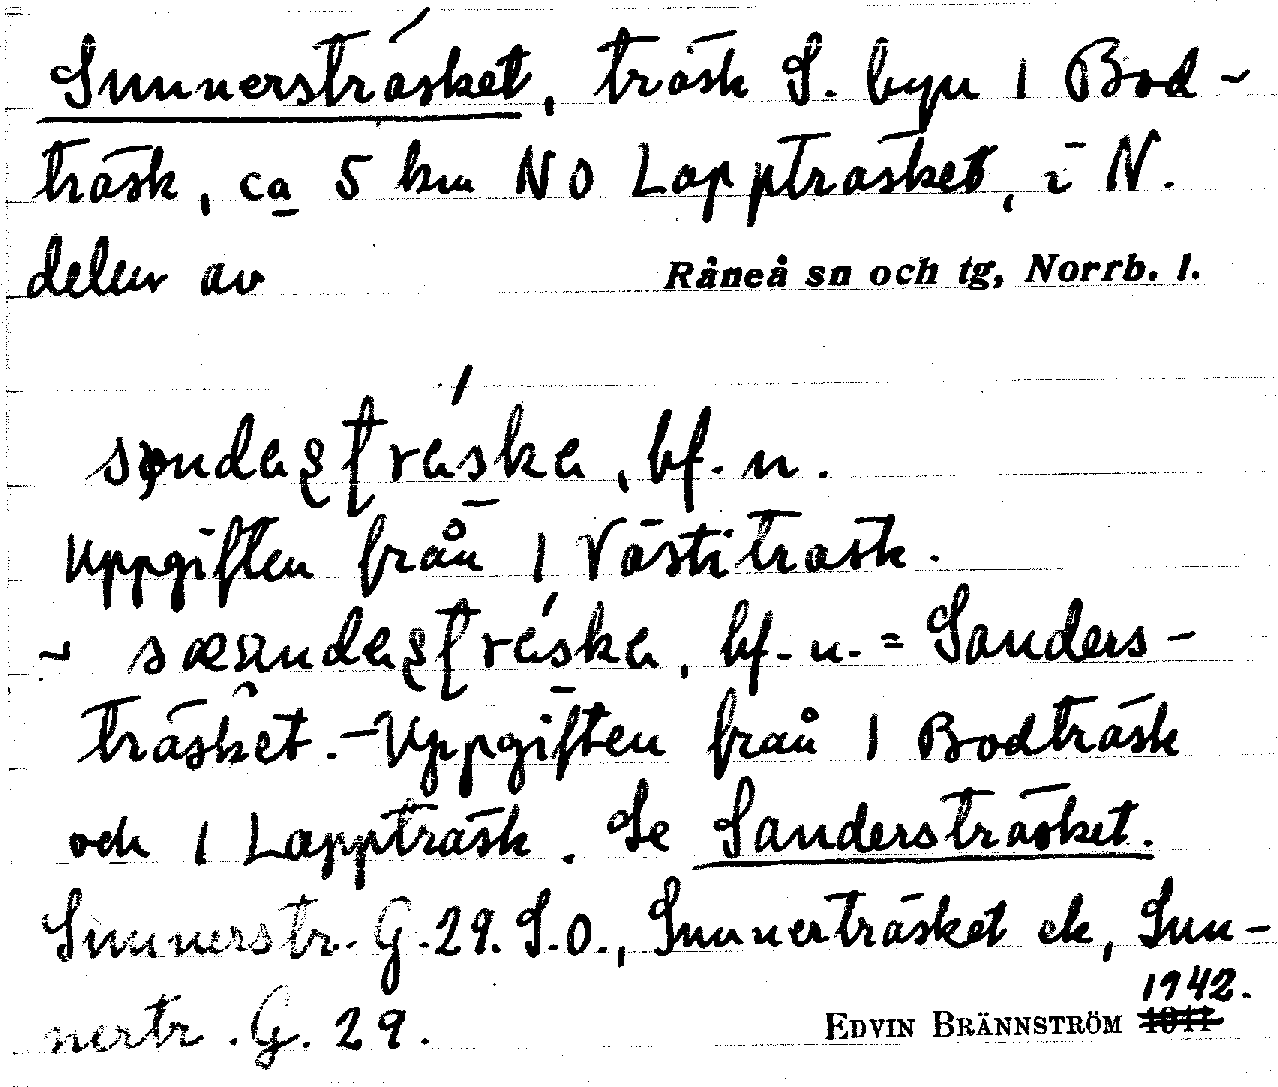 Sunnersträsket, träsk S. byn 1 Bod-
träsk, ca 5 km NO Lappträsket, i N.
delen av Råneå sn och tg, Norrb. l.
bf. n.
Uppgiften från 1 Västiträsk.
~ bf. n. = Sanders-
träsket. – Uppgiften från 1 Bodträsk
och 1 Lappträsk. Se Sandersträsket.
Sunnerstr. G. 29. S.O., Sunnerträsket ek, Sun-
nertr. G. 29.
1942.
EDVIN BRÄNNSTRÖM 1941